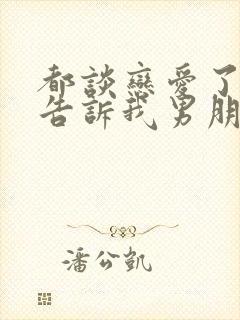 都談戀愛了
告訴我男朋
潘公凱